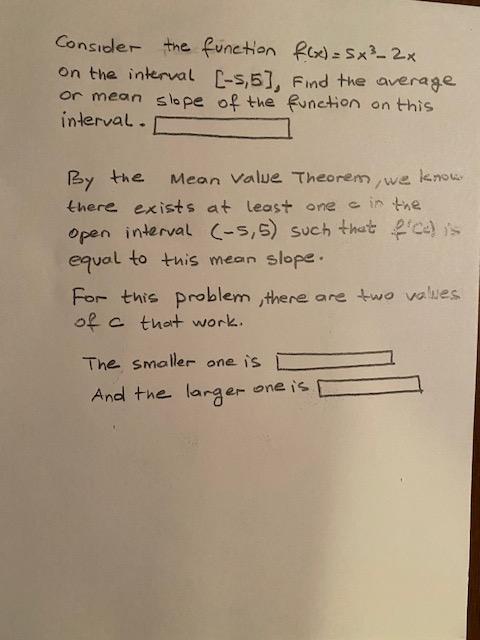 Consider the function f(x) = 5x³ - 2x
on the interval [-5,5], Find the average
or mean slope of the function on this
interval.
By the Mean Value Theorem, we know
there exists at least one c in the
open interval (-5,5) such that f'(c) is
equal to this mean slope.
For this problem, there are two values
of c that work.
The smaller one is
And the larger one is